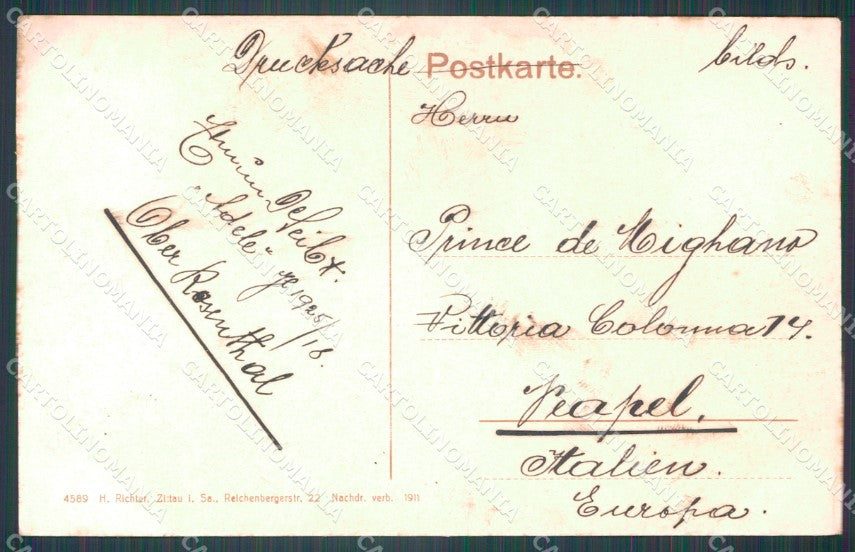 Drucksache Postkarte. bilds.
Herrn
Prince de Mighano
Vittoria Colonna 14.
Neapel.
Italien.
Europa.
"Adele"
1925/16.
Ober Rosenthal
4589 H. Richter, Zittau i. Sa., Reichenbergerstr. 22 Nachdr. verb. 1911
CARTOLINOMANIA